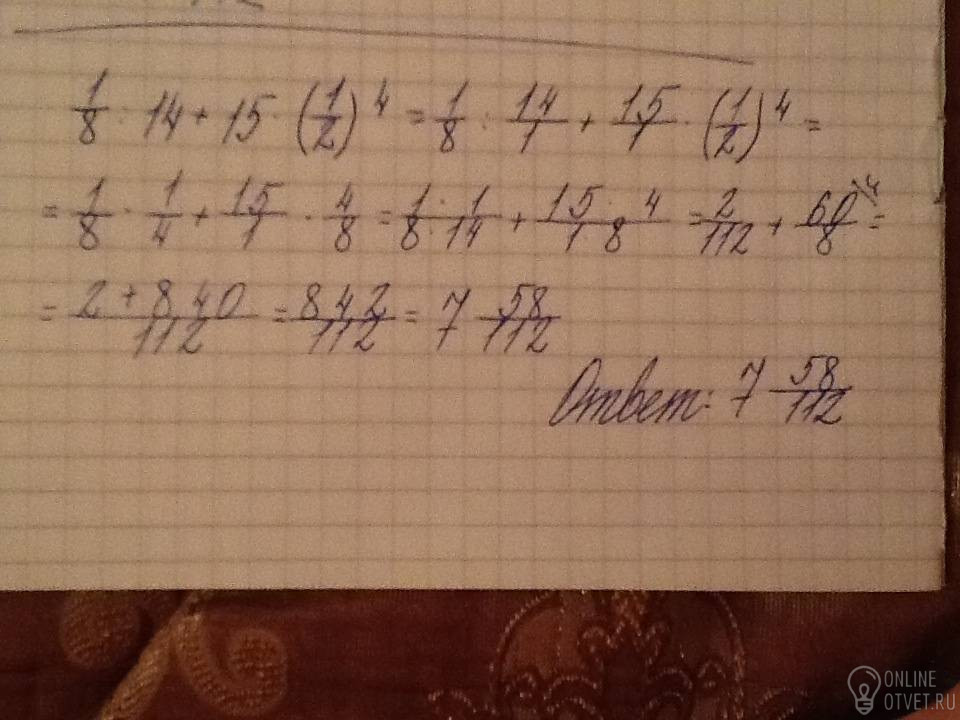 1/8 : 14 + 15 · (1/2)^4 = 1/8 : 14/1 + 15/1 · (1/2)^4 =
= 1/8 · 1/4 + 15/1 · 4/8 = 1 · 1/8 · 14 + 15 · 4/1 · 8 = 2/112 + 60/8 \14 =
= 2 + 840/112 = 842/112 = 7 58/112
Ответ: 7 58/112
ONLINE
OTVET.RU